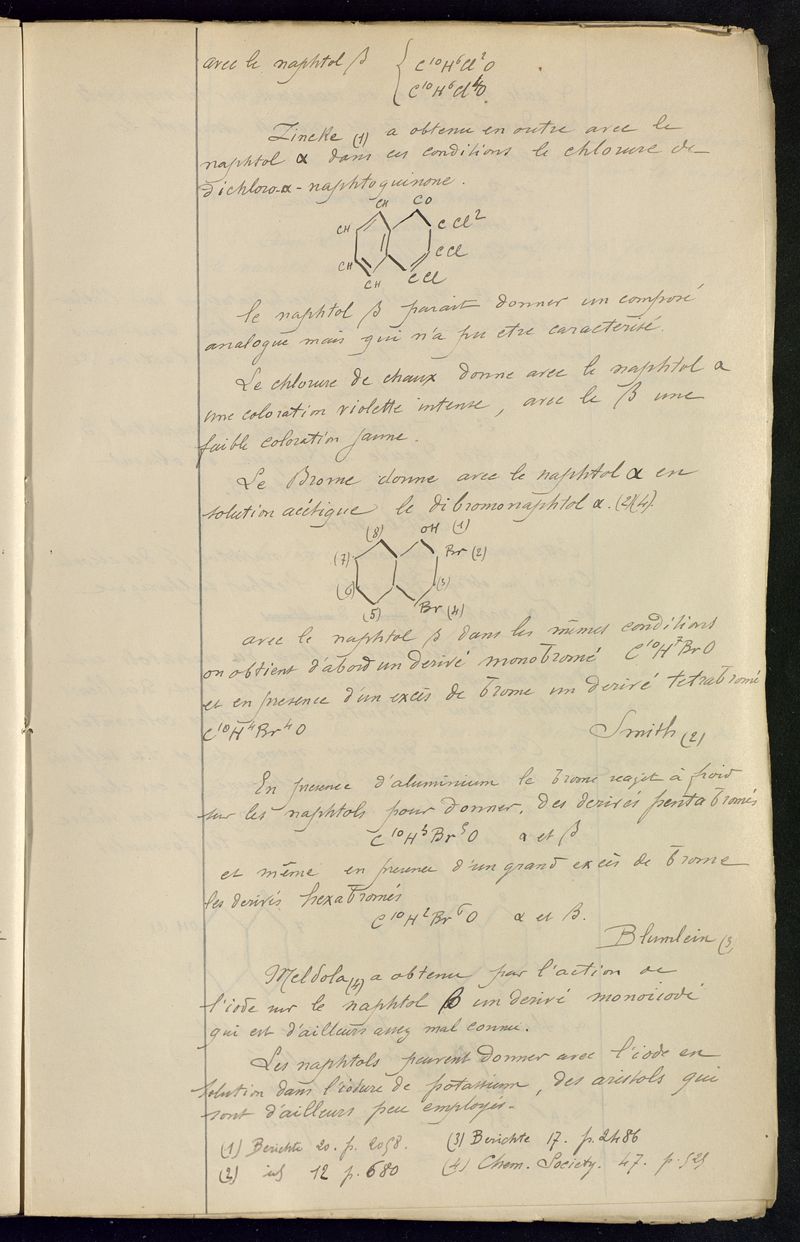 avec le naphtol β { C¹⁰H⁶Cl²O
C¹⁰H⁶Cl⁴O
Zincke (1) a obtenu en outre avec le
naphtol α dans ces conditions le chlorure de
dichloro-α-naphtoquinone.
CH CO
CH C Cl²
C Cl
CH CH C Cl
le naphtol β parait donner un composé
analogue mais qui n'a pu etre caractérisé.
Le chlorure de chaux donne avec le naphtol α
une coloration violette intense, avec le β une
faible coloration jaune.
Le Brome donne avec le naphtol α en
solution acétique le dibromonaphtol α. (2)(4).
(8) OH (1)
(7) Br (2)
(6) (3)
(5) Br (4)
avec le naphtol β dans les mêmes conditions
on obtient d'abord un derivé monobromé C¹⁰H⁷BrO
et en presence d'un excès de brome un derivé tetrabromé
C¹⁰H⁴Br⁴O
Smith (2)
En presence d'aluminium le brome reagit à froid
sur les naphtols pour donner, des derivés pentabromés
C¹⁰H³Br⁵O α et β
et même en presence d'un grand excès de brome
les derivés hexabromés
C¹⁰H²Br⁶O α et β.
Blumlein (3
Meldola (4) a obtenu par l'action de
l'iode sur le naphtol β un derivé monoiodé
qui est d'ailleurs assez mal connu.
Les naphtols peuvent donner avec l'iode en
solution dans l'iodure de potassium, des aristols qui
sont d'ailleurs peu employés.
(1) Berichte 20. p. (3) Berichte 17. p. 2486
(2) 12 p. 680 (4) Chem. Society. 47. p.